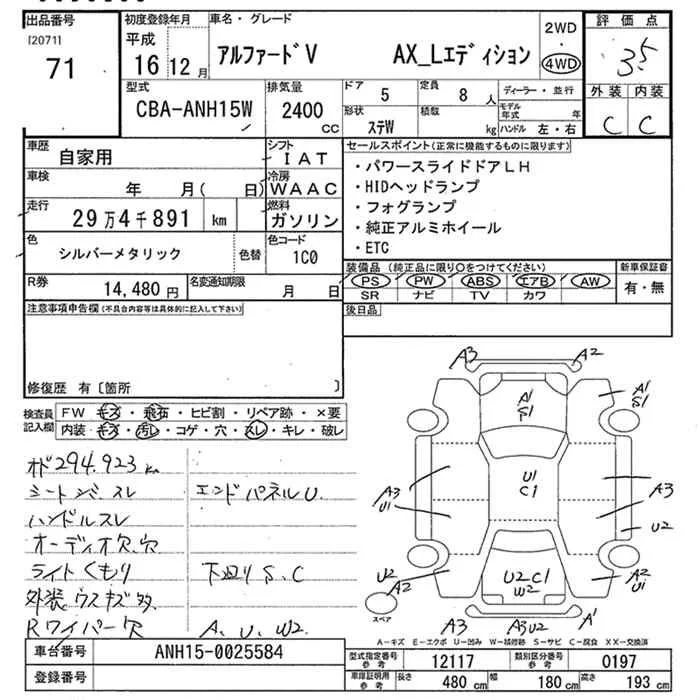 出品番号
[2071]
71
初度登録年月
平成
16年12月
車名・グレード
アルファードV AX_Lエディション
2WD
・
4WD
評価点
3.5
外装 内装
C C
型式
CBA-ANH15W
排気量
2400
cc
ドア 5
定員 8 人
形状 ステW
積数 kg
ディーラー・並行
モデル年式 年
ハンドル 左・右
車歴
自家用
シフト
IAT
車検
年 月( 日)
冷房
WAAC
走行
29万4千891 km
燃料
ガソリン
色
シルバーメタリック
色替
色コード
1C0
R券
14,480 円
名変通知期限
月 日
セールスポイント(正常に機能するものに限ります)
・パワースライドドアLH
・HIDヘッドランプ
・フォグランプ
・純正アルミホイール
・ETC
装備品 (純正品に限り○をつけてください)
PS PW ABS エアB AW
SR ナビ TV カワ
新車保証書
有・無
後日品
注意事項申告欄(不具合内容等は具体的に記入して下さい)
修復歴 有〔箇所 〕
検査員記入欄
FW キズ・飛石・ヒビ割・リペア跡・×要
内装 キズ・汚レ・コゲ・穴・スレ・キレ・破レ
オド294.923 km
シートシバ、スレ
エンドパネルU.
ハンドルスレ
オーディオ欠、穴
ライトくもり
下廻りS、C
外装ウスキズ多
Rワイパー欠
A、U、W2.
A3 A2
A1
S1
A1
S1
U1
C1
A3
U1
A3
U2
U2
A2
U2C1
W2
A2
U1
スペア
A3 A3U2 A1
A-キズ E-エクボ U-凹み W-補修跡 S-サビ C-腐食 XX-交換済
車台番号
ANH15-0025584
登録番号
型式指定番号
参考
12117
類別区分番号
参考
0197
車庫証明用
参考
長さ 480 cm
幅 180 cm
高さ 193 cm